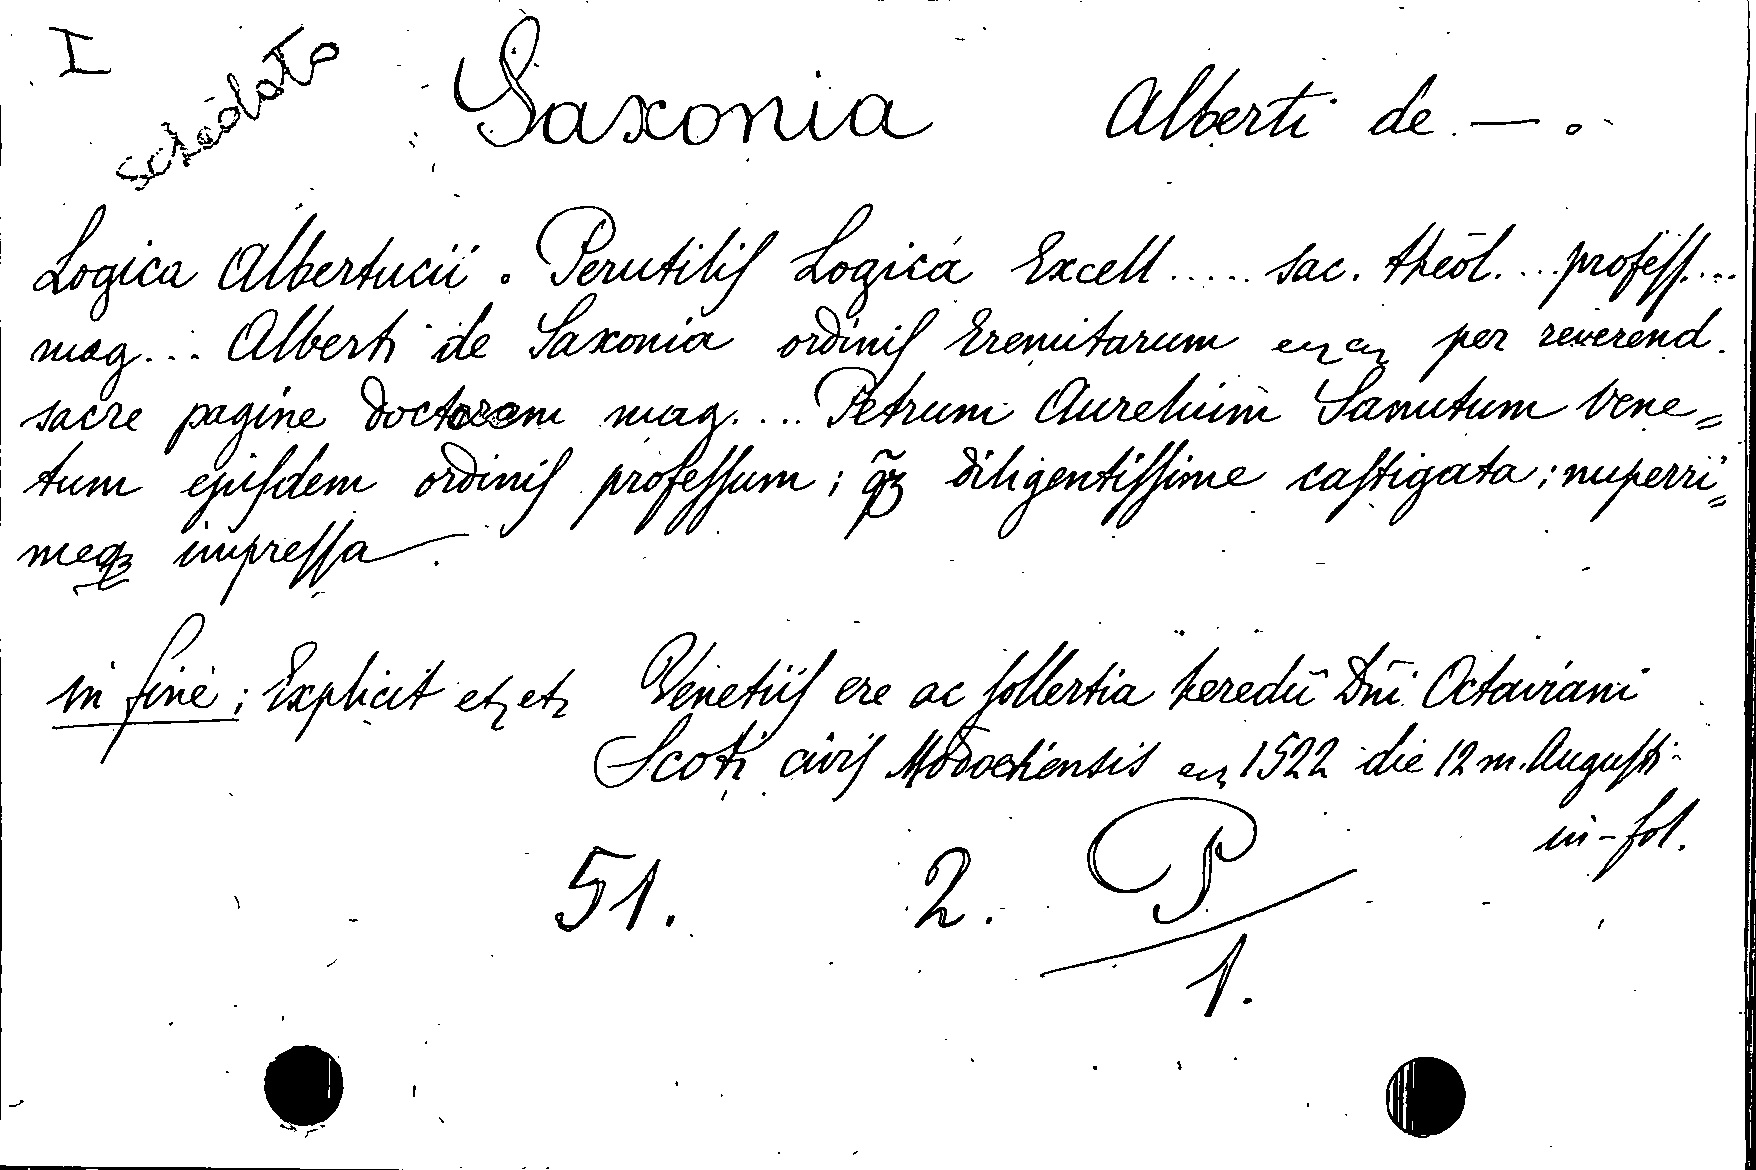 I
schedato
Saxonia Alberti de — .
Logica Albertucii . Perutilis Logica Excell..... sac. theol... profess....
mag... Alberti de Saxonia ordinis Eremitarum per reverend.
sacre pagine doctorem mag.... Petrum Aurelium Sanutum Vene=
tum ejusdem ordinis professum; qz diligentissime castigata; nuperri=
meqz impressa.
in fine: Explicit etc etc Venetiis ere ac sollertia heredū Dñi Octaviani
Scoti civis Modoetiensis 1522 die 12 m. Augusti-
in-fol.
51. 2. P
1.